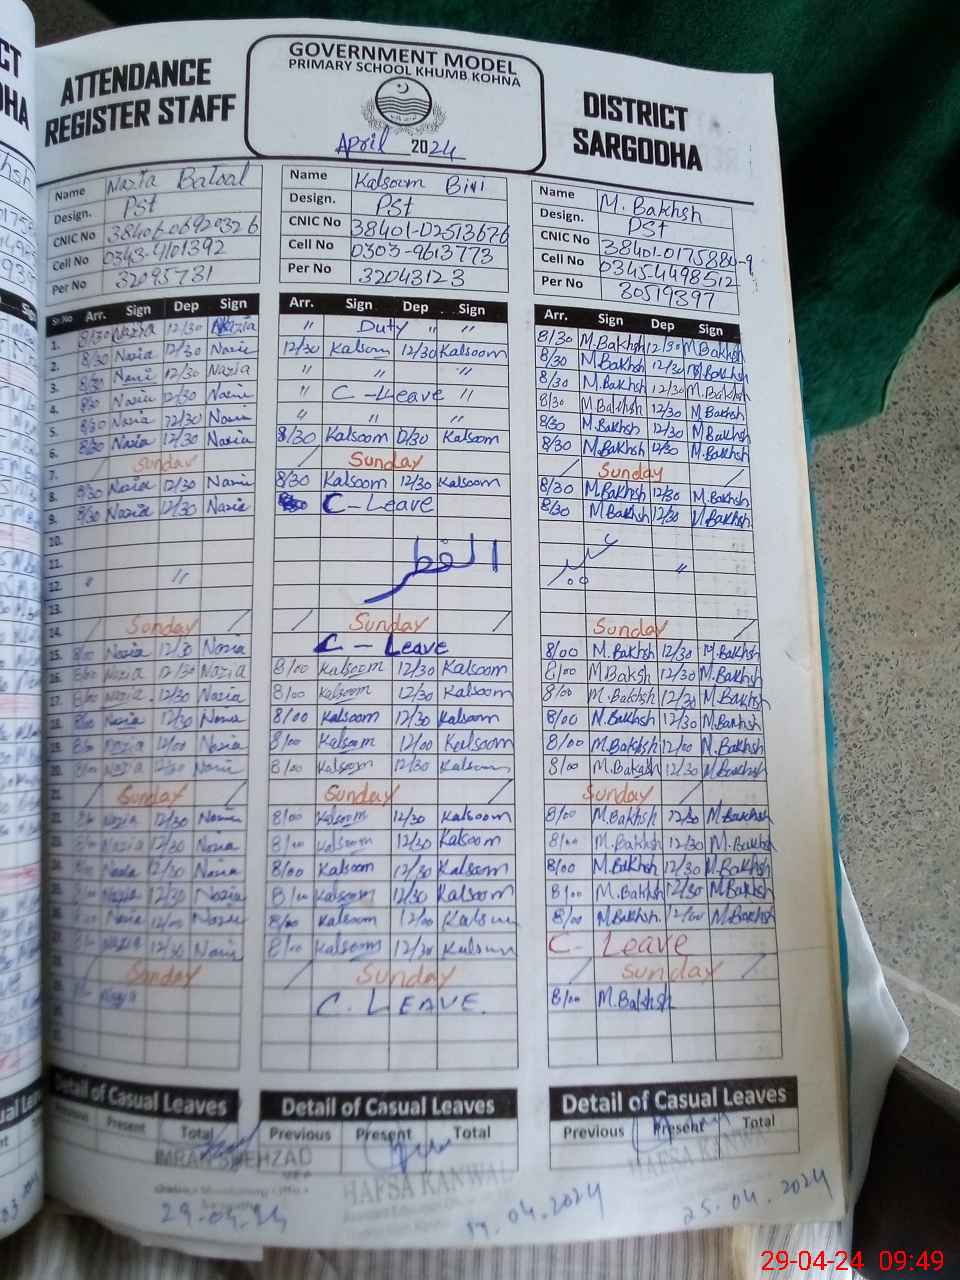 ATTENDANCE
REGISTER STAFF
GOVERNMENT MODEL
PRIMARY SCHOOL KHUMB KOHNA
April 2024
DISTRICT
SARGODHA
Name Nazia Batool
Design. PST
CNIC No
Cell No 0343-4101392
Per No 32095731
Name Kalsoom Bivi
Design. PST
CNIC No 38401-02513676
Cell No 0303-9613773
Per No 32043123
Name M. Bakhsh
Design. PST
CNIC No 38401-0175884-9
Cell No 03454498512
Per No 30519397
Sr. No Arr. Sign Dep Sign Arr. Sign Dep Sign Arr Sign Dep Sign
1. 8/30 Nazia 12/30 Nazia " Duty " " 8/30 M.Bakhsh 12/30 M.Bakhsh
2. 8/30 Nazia 12/30 Nazia 12/30 Kalsom 12/30 Kalsoom 8/30 M.Bakhsh 12/30 M.Bakhsh
3. 8/30 Nazia 12/30 Nazia " " " 8/30 M.Bakhsh 12/30 M.Bakhsh
4. 8/30 Nazia 12/30 Nazia " C-Leave " 8/30 M.Bakhsh 12/30 M.Bakhsh
5. 8/30 Nazia 12/30 Nazia " " " 8/30 M.Bakhsh 12/30 M.Bakhsh
6. 8/30 Nazia 12/30 Nazia 8/30 Kalsoom 12/30 Kalsoom 8/30 M.Bakhsh 12/30 M.Bakhsh
7. Sunday Sunday Sunday
8. 8/30 Nazia 12/30 Nazia 8/30 Kalsoom 12/30 Kalsoom 8/30 M.Bakhsh 12/30 M.Bakhsh
9. 8/30 Nazia 12/30 Nazia C-Leave 8/30 M.Bakhsh 12/30 M.Bakhsh
10.
11. الفطر عید
12. " " "
13.
14. Sunday Sunday Sunday
15. 8/00 Nazia 12/30 Nazia C-Leave 8/00 M.Bakhsh 12/30 M.Bakhsh
16. 8/00 Nazia 12/30 Nazia 8/00 Kalsoom 12/30 Kalsoom 8/00 M.Baksh 12/30 M.Bakhsh
17. 8/00 Nazia 12/30 Nazia 8/00 Kalsoom 12/30 Kalsoom 8/00 M.Bakhsh 12/30 M.Bakhsh
18. 8/00 Nazia 12/30 Nazia 8/00 Kalsoom 12/30 Kalsoom 8/00 M.Bakhsh 12/30 M.Bakhsh
19. 8/00 Nazia 12/00 Nazia 8/00 Kalsoom 12/00 Kalsoom 8/00 M.Bakhsh 12/00 M.Bakhsh
20. 8/00 Nazia 12/30 Nazia 8/00 Kalsoom 12/30 Kalsoom 8/00 M.Bakhsh 12/30 M.Bakhsh
21. Sunday Sunday Sunday
Nazia 12/30 Nazia 8/00 Kalsoom 12/30 Kalsoom 8/00 M.Bakhsh 12/30 M.Bakhsh
Nazia 12/30 Nazia 8/00 Kalsoom 12/30 Kalsoom 8/00 M.Bakhsh 12/30 M.Bakhsh
Nazia 12/30 Nazia 8/00 Kalsoom 12/30 Kalsoom 8/00 M.Bakhsh 12/30 M.Bakhsh
Nazia 12/30 Nazia 8/00 Kalsoom 12/30 Kalsoom 8/00 M.Bakhsh 12/30 M.Bakhsh
Nazia 12/00 Nazia 8/00 Kalsoom 12/00 Kalsoom 8/00 M.Bakhsh 12/00 M.Bakhsh
Nazia 12/30 Nazia 8/00 Kalsoom 12/30 Kalsoom C- Leave
Sunday Sunday Sunday
Nazia C. LEAVE. 8/00 M.Bakhsh
Detail of Casual Leaves Detail of Casual Leaves Detail of Casual Leaves
Present Total Previous Present Total Previous Present Total
IMRAN SHEHZAD
HAFSA KANWAL
HAFSA KANWAL
29.04.24
04.2024
25.04.2024
29-04-24 09:49